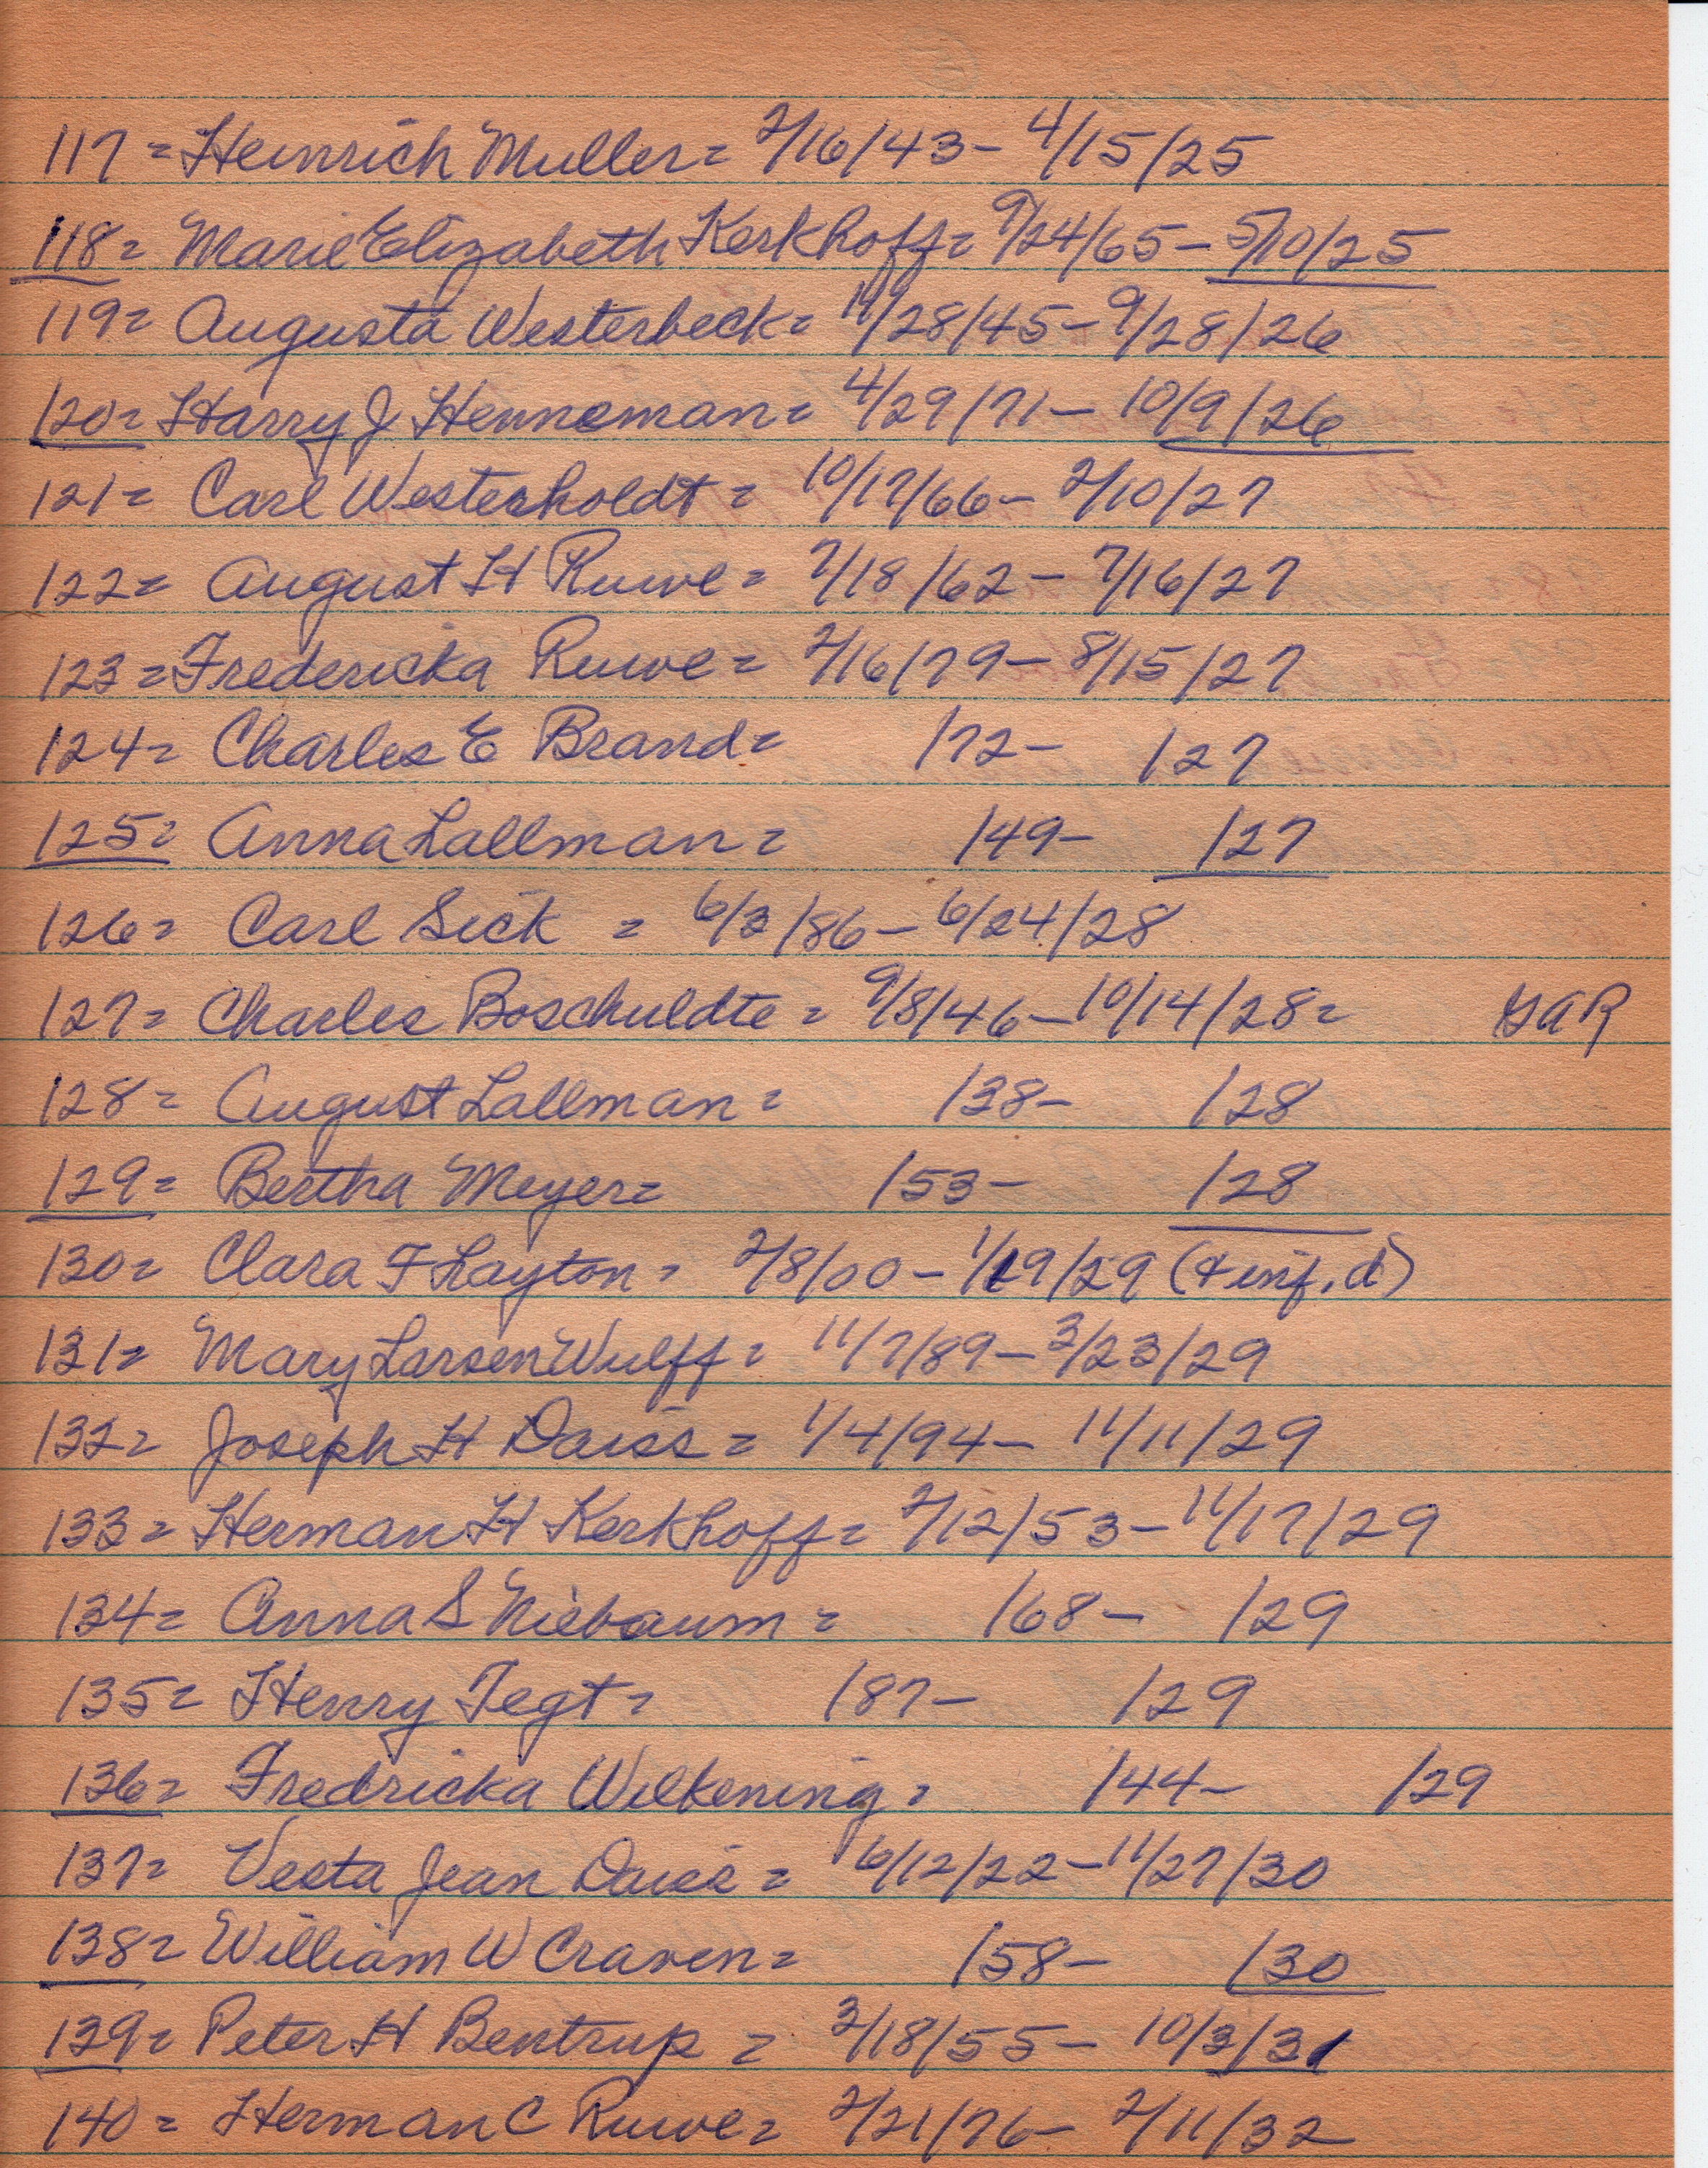 117 = Heinrich Muller = 2/16/43 - 4/15/25
118 = Marie Elizabeth Kerkhoff = 9/24/65 - 5/10/25
119 = Augusta Westerbeck = 11/28/45 - 9/28/26
120 = Harry J Henneman = 4/29/71 - 10/9/26
121 = Carl Westerholdt = 10/17/66 - 2/10/27
122 = August H Ruwe = 7/18/62 - 7/16/27
123 = Fredericka Ruwe = 2/16/79 - 8/15/27
124 = Charles E Brand = /72 - /27
125 = Anna Lallman = /49 - /27
126 = Carl Sick = 6/3/86 - 6/24/28
127 = Charles Boschuldte = 9/8/46 - 10/14/28 = GAR
128 = August Lallman = /38 - /28
129 = Bertha Meyer = /53 - /28
130 = Clara F Layton = 2/8/00 - 1/19/29 (+ inf. d)
131 = Mary Larsen Wulff = 11/7/89 - 3/23/29
132 = Joseph H Daiss = 1/4/94 - 11/11/29
133 = Herman H Kerkhoff = 2/12/53 - 11/17/29
134 = Anna S Niebaum = /68 - /29
135 = Henry Tegt = /87 - /29
136 = Fredricka Wilkening = /44 - /29
137 = Vesta Jean Daiss = 6/12/22 - 11/27/30
138 = William W Craven = /58 - /30
139 = Peter H Bentrup = 3/18/55 - 10/3/31
140 = Herman C Ruwe = 2/21/76 - 2/11/32